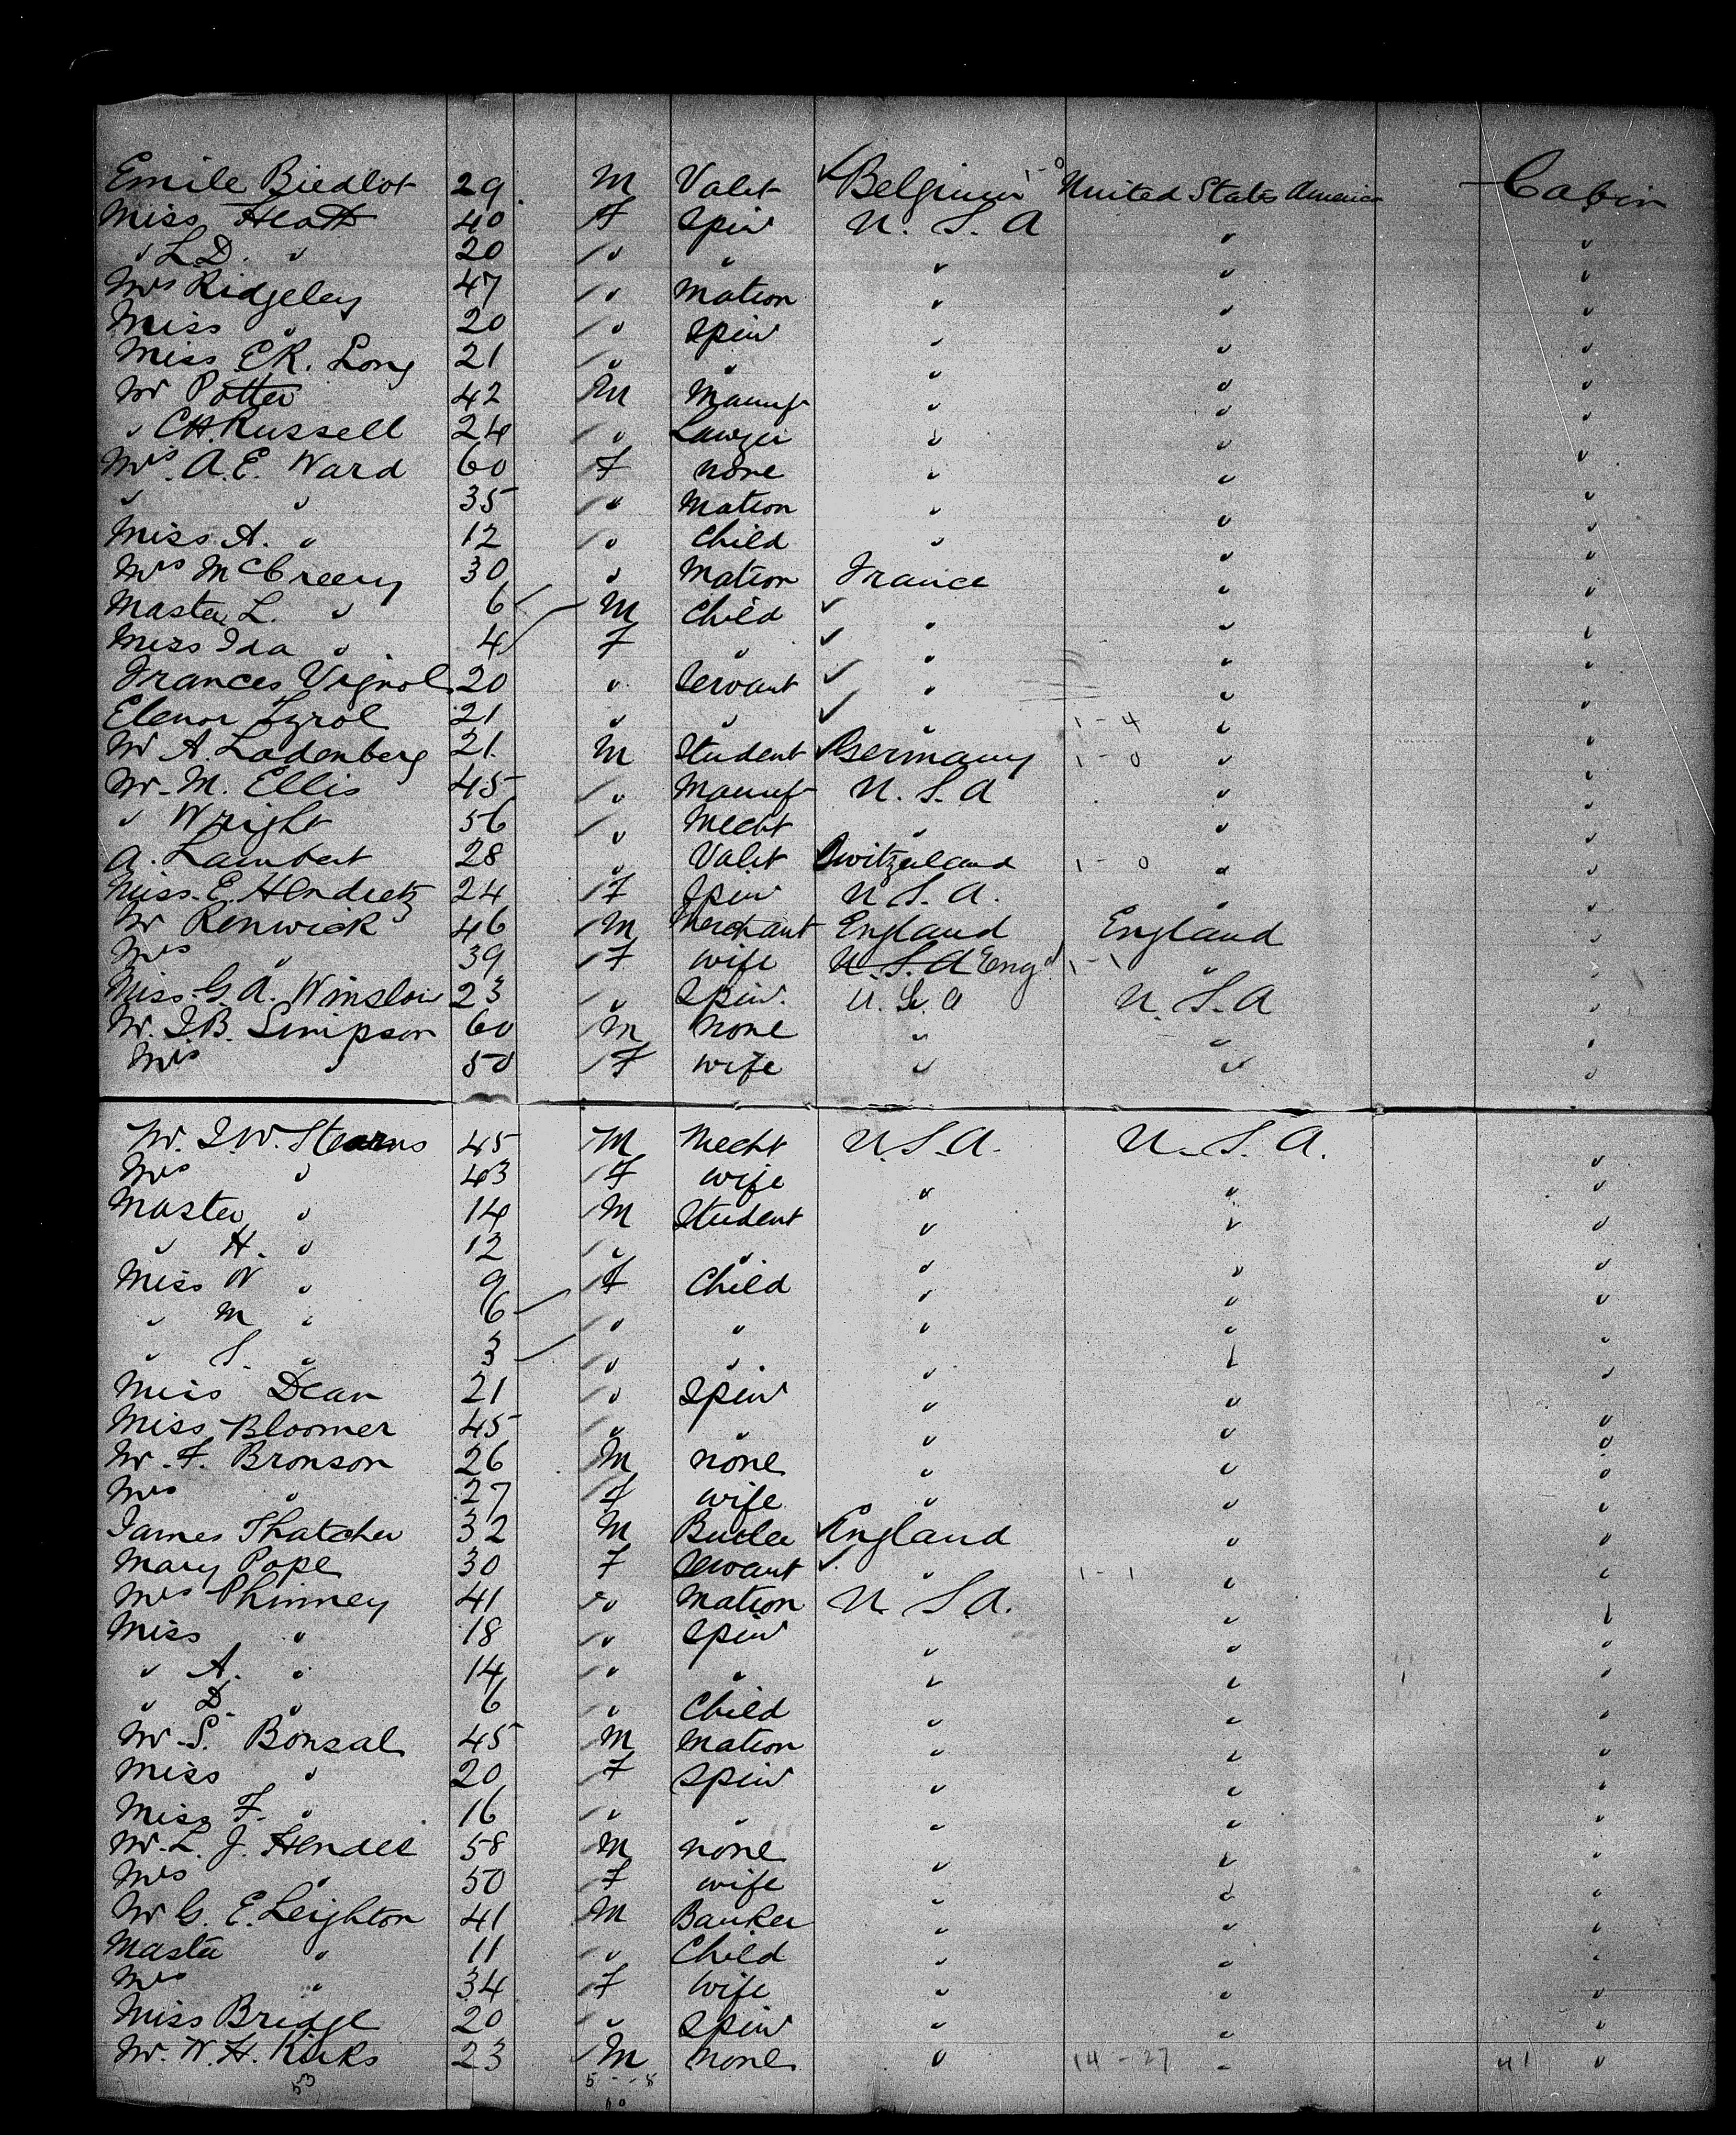 Emile Biedlot 29 M Valet Belgium 1-0 United States America Cabin
Miss Heath 40 F Spin U.S.A " "
" L.D. " 20 " " " " "
Mrs Ridgeley 47 " Matron " " "
Miss " 20 " Spin " " "
Miss E.R. Long 21 " " " " "
Mr Potter 42 M Manuf " " "
" C.H. Russell 24 " Lawyer " " "
Mrs. A.E. Ward 60 F none " " "
" " 35 " Matron " " "
Miss A. " 12 " Child " " "
Mrs McCreery 30 " Matron France " "
Master L. " 6 M Child " " "
Miss Ida " 4 F " " " "
Frances Vignol 20 " Servant " " "
Elenor Lyrol 21 " " " 1-4 " "
Mr A. Ladenberg 21 M Student Germany 1-0 " "
Mr. M. Ellis 45 " Manuf U.S.A " "
" Wright 56 " Mecht " " "
A. Lambert 28 " Valet Switzerland 1-0 " "
Miss. E. Hendretz 24 F Spin U.S.A. " "
Mr Renwick 46 M Merchant England England "
Mrs " 39 F wife U.S.A Engd 1-1 " "
Miss. G.A. Winslow 23 " Spin. U.S.A U.S.A "
Mr. I.B. Simpson 60 M none " " "
Mrs " 50 F wife " " "
Mr. I.W. Stearns 45 M Mecht U.S.A. U.S.A. "
Mrs " 43 F wife " " "
Master " 14 M Student " " "
" H. " 12 " " " " "
Miss W " 9 F Child " " "
" M " 6 " " " " "
" S. " 3 " " " " "
Miss Dean 21 " Spin " " "
Miss Bloomer 45 " " " " "
Mr. F. Bronson 26 M none " " "
Mrs " 27 F wife " " "
James Thatcher 32 M Butler England " "
Mary Pope 30 F Servant " 1-1 " "
Mrs Phinney 41 " Matron U.S.A. " "
Miss " 18 " Spin " " "
" A. " 14 " " " " "
" D. " 6 " Child " " "
Mr. S. Bonsal 45 M Matron " " "
Miss " 20 F Spin " " "
Miss F. " 16 " " " " "
Mr. L. J. Hendee 58 M none " " "
Mrs " 50 F wife " " "
Mr G. E. Leighton 41 M Banker " " "
Master " 11 " Child " " "
Mrs " 34 F Wife " " "
Miss Bridge 20 " Spin " " "
Mr. W. H. Kirks 23 M none " 14-27 " 41 "
53 5--8
60